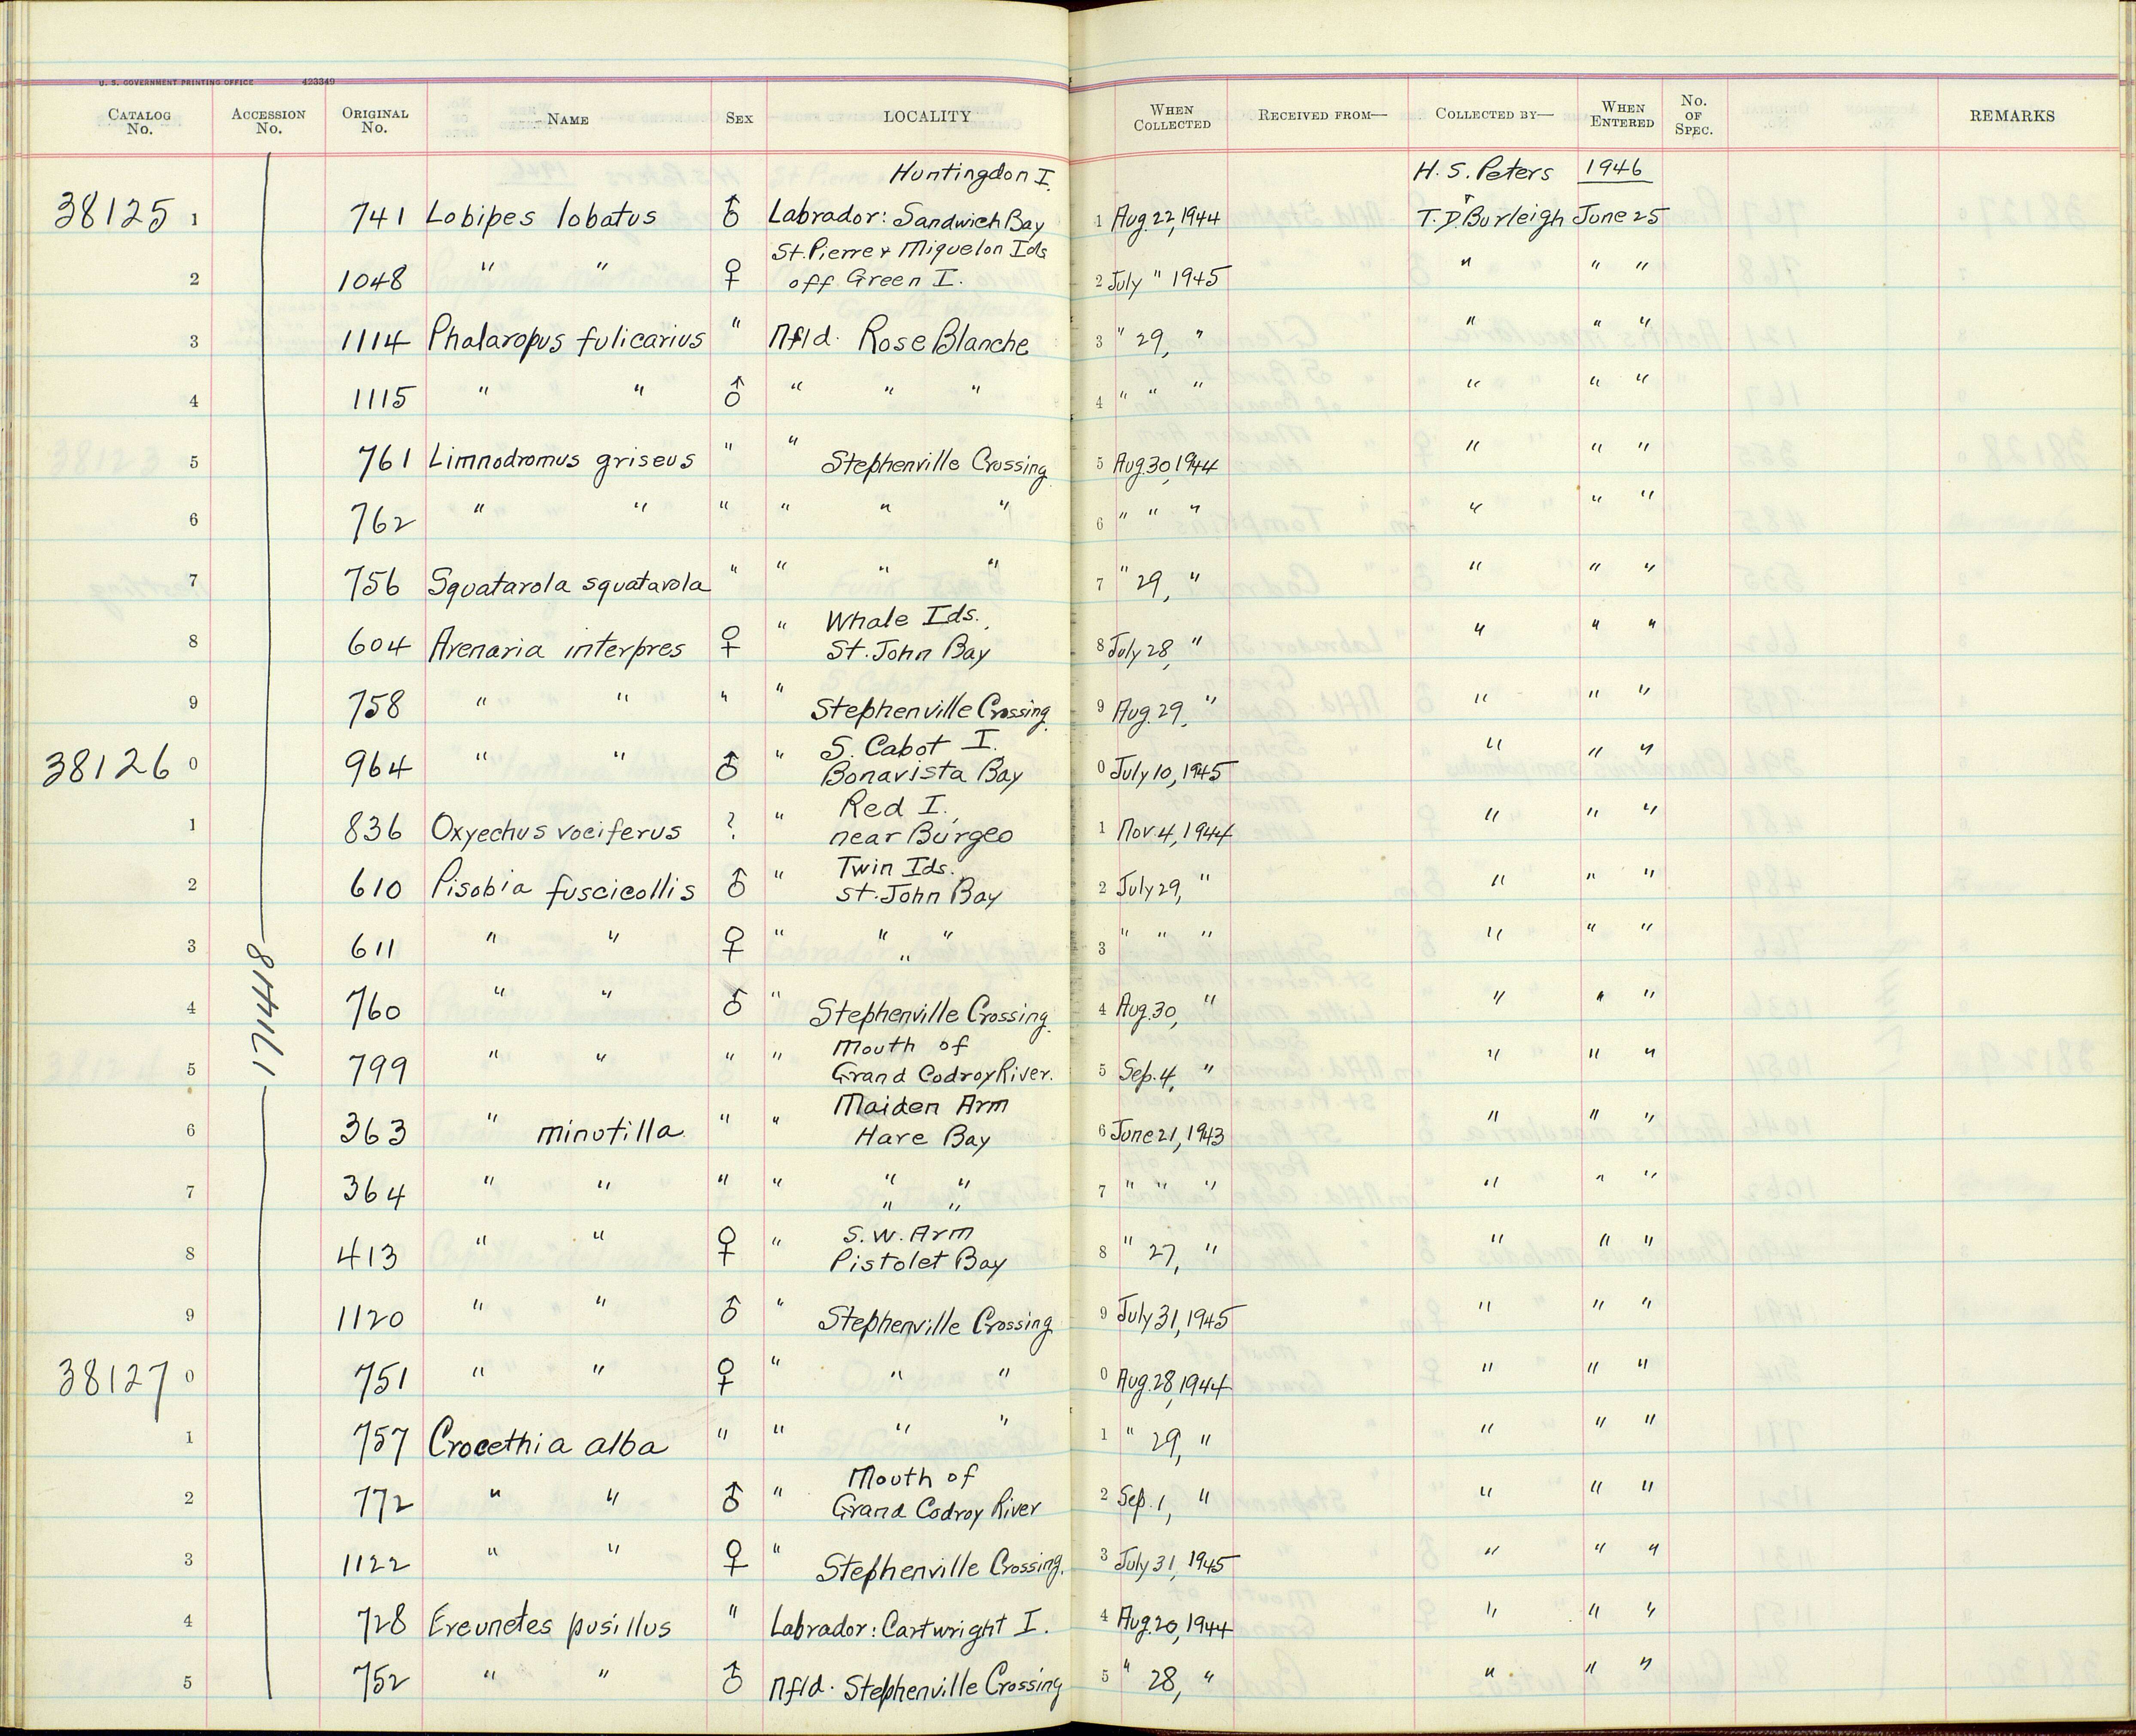 U. S. GOVERNMENT PRINTING OFFICE 423349
CATALOG No. ACCESSION No. ORIGINAL No. NAME SEX LOCALITY WHEN COLLECTED RECEIVED FROM— COLLECTED BY— WHEN ENTERED No. OF SPEC. REMARKS
Huntingdon I. H. S. Peters 1946
38125 1 741 Lobipes lobatus ♂ Labrador: Sandwich Bay 1 Aug. 22, 1944 T. D. Burleigh June 25
St. Pierre & Miquelon Ids
2 1048 " " ♀ off Green I. 2 July " 1945 " " "
3 1114 Phalaropus fulicarius " Nfld. Rose Blanche 3 " 29, " " " "
4 1115 " " ♂ " " " 4 " " " " " "
5 761 Limnodromus griseus " " Stephenville Crossing 5 Aug. 30, 1944 " " "
6 762 " " " " " " 6 " " " " " "
7 756 Squatarola squatarola " " " " 7 " 29, " " " "
Whale Ids.
8 604 Arenaria interpres ♀ " St. John Bay 8 July 28, " " " "
9 758 " " " " Stephenville Crossing 9 Aug. 29, " " " "
S. Cabot I.
38126 0 964 " " ♂ " Bonavista Bay 0 July 10, 1945 " " "
Red I.,
1 836 Oxyechus vociferus ? " near Burgeo 1 Nov. 4, 1944 " " "
Twin Ids.
2 610 Pisobia fuscicollis ♂ " St. John Bay 2 July 29, " " " "
3 611 " " ♀ " " " " 3 " " " " " "
171448
4 760 " " ♂ " Stephenville Crossing 4 Aug. 30, " " " "
Mouth of
5 799 " " " " Grand Codroy River. 5 Sep. 4, " " " "
Maiden Arm
6 363 " minutilla " " Hare Bay 6 June 21, 1943 " " "
7 364 " " " " " " 7 " " " " " "
" "
S. W. Arm
8 413 " " ♀ " Pistolet Bay 8 " 27, " " " "
9 1120 " " ♂ " Stephenville Crossing 9 July 31, 1945 " " "
38127 0 751 " " ♀ " " " 0 Aug. 28, 1944 " " "
1 757 Crocethia alba " " " " 1 " 29, " " " "
Mouth of
2 772 " " ♂ " Grand Codroy River 2 Sep. 1, " " " "
3 1122 " " ♀ " Stephenville Crossing. 3 July 31, 1945 " " "
4 728 Ereunetes pusillus " Labrador: Cartwright I. 4 Aug. 20, 1944 " " "
5 752 " " ♂ Nfld. Stephenville Crossing 5 " 28, " " " "